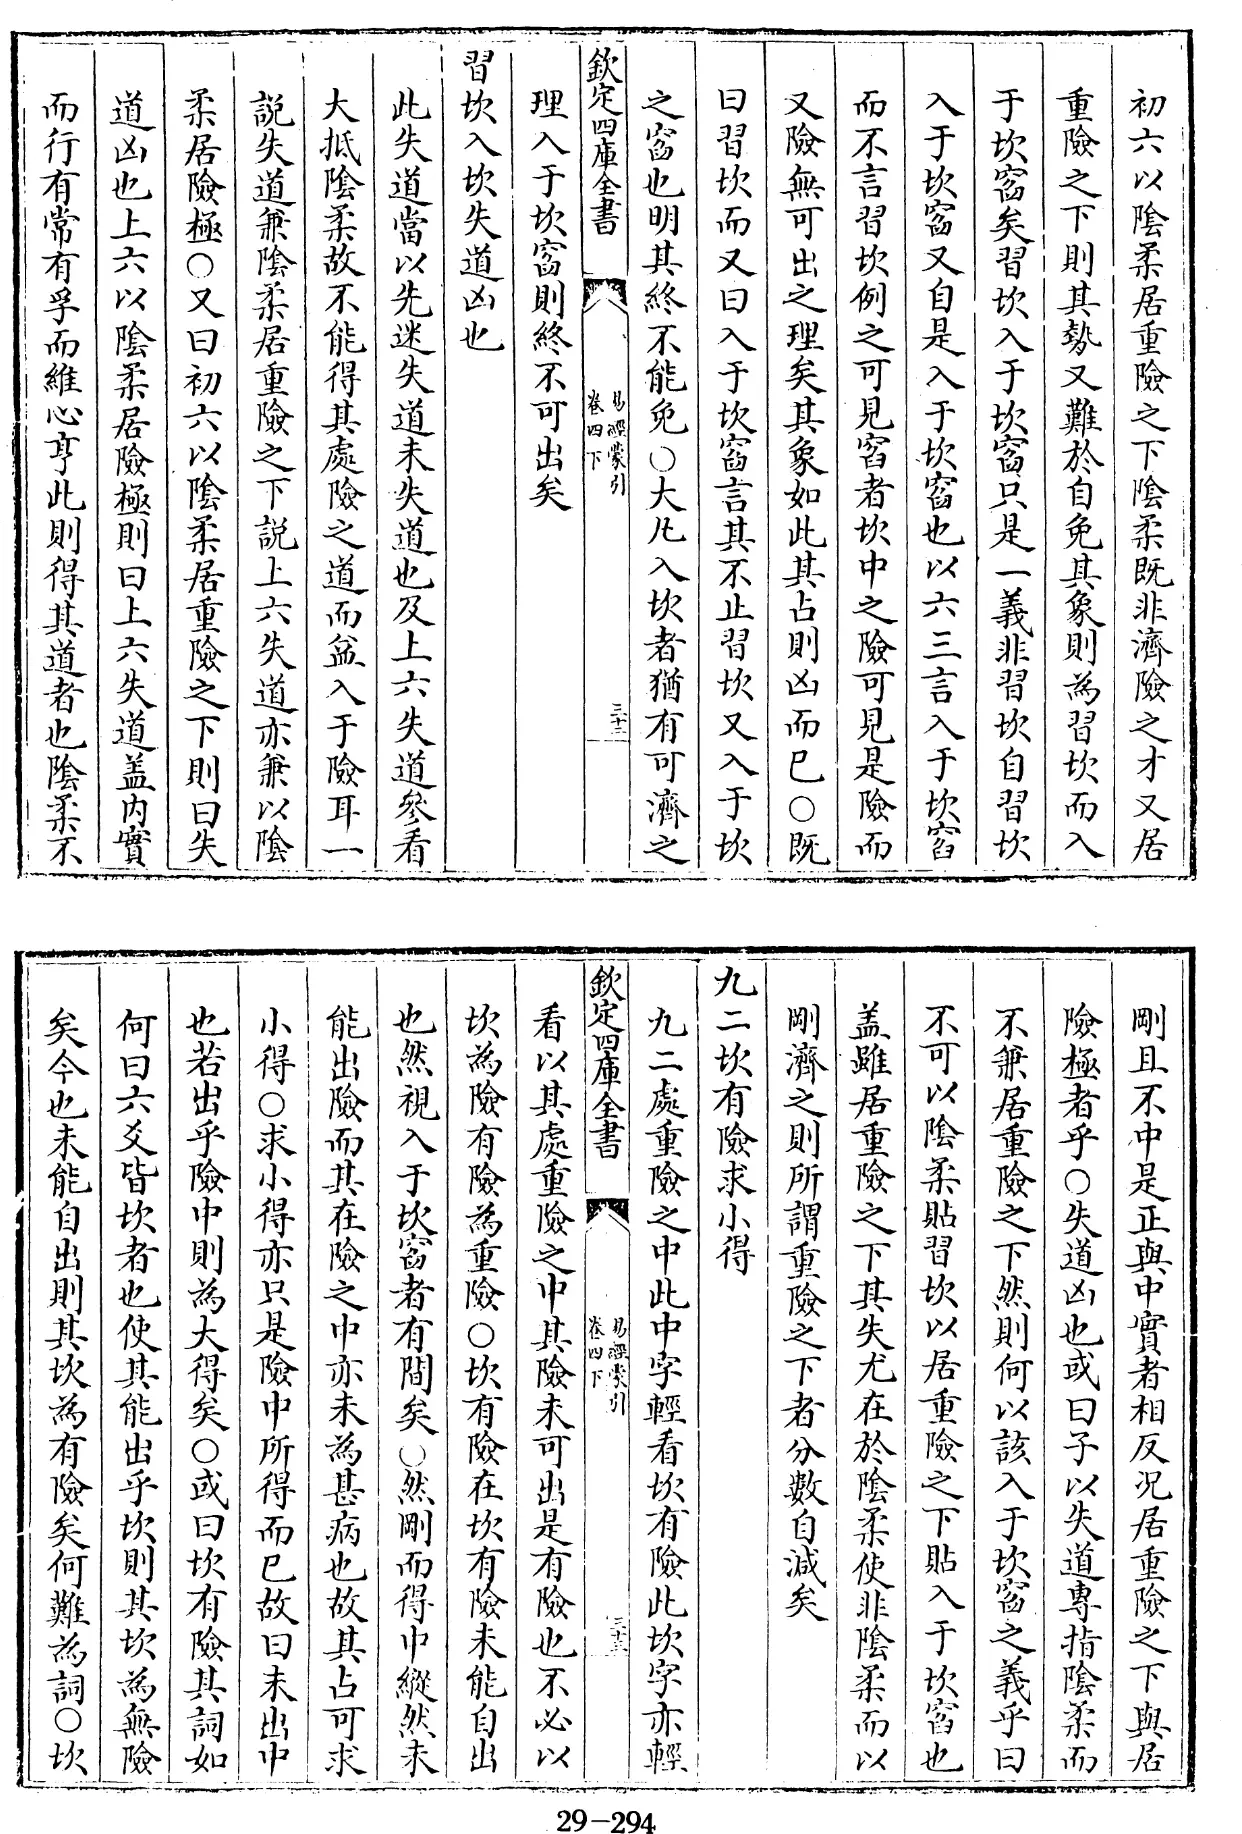 初六以陰柔居重險之下陰柔既非濟險之才又居
重險之下則其勢又難於自免其象則為習坎而入
于坎窞矣習坎入于坎窞只是一義非習坎自習坎
入于坎窞又自是入于坎窞也以六三言入于坎窞
而不言習坎例之可見窞者坎中之險可見是險而
又險無可出之理矣其象如此其占則凶而已○既
曰習坎而又曰入于坎窞言其不止習坎又入于坎
之窞也明其終不能免○大凡入坎者猶有可濟之
欽定四庫全書
易經蒙引
卷四下
三十三
理入于坎窞則終不可出矣
習坎入坎失道凶也
此失道當以先迷失道未失道也及上六失道參看
大抵陰柔故不能得其處險之道而益入于險耳一
説失道兼陰柔居重險之下説上六失道亦兼以陰
柔居險極○又曰初六以陰柔居重險之下則曰失
道凶也上六以陰柔居險極則曰上六失道蓋内實
而行有常有孚而維心亨此則得其道者也陰柔不
剛且不中是正與中實者相反况居重險之下與居
險極者乎○失道凶也或曰子以失道專指陰柔而
不兼居重險之下然則何以該入于坎窞之義乎曰
不可以陰柔貼習坎以居重險之下貼入于坎窞也
蓋雖居重險之下其失尤在於陰柔使非陰柔而以
剛濟之則所謂重險之下者分數自減矣
九二坎有險求小得
九二處重險之中此中字輕看坎有險此坎字亦輕
欽定四庫全書
易經蒙引
卷四下
三十三
看以其處重險之中其險未可出是有險也不必以
坎為險有險為重險○坎有險在坎有險未能自出
也然視入于坎窞者有間矣○然剛而得中縱然未
能出險而其在險之中亦未為甚病也故其占可求
小得○求小得亦只是險中所得而已故曰未出中
也若出乎險中則為大得矣○或曰坎有險其詞如
何曰六爻皆坎者也使其能出乎坎則其坎為無險
矣今也未能自出則其坎為有險矣何難為詞○坎
29-294